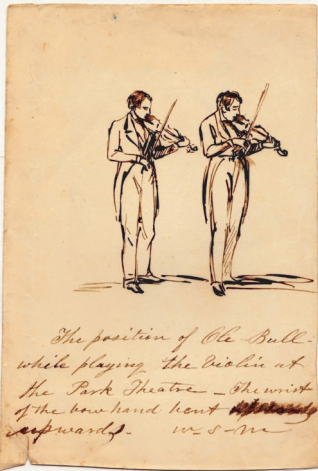 The position of Ole Bull -
while playing the Violin at
the Park Theatre _ The wrist
of the bow hand bent
upwards. W_S_M